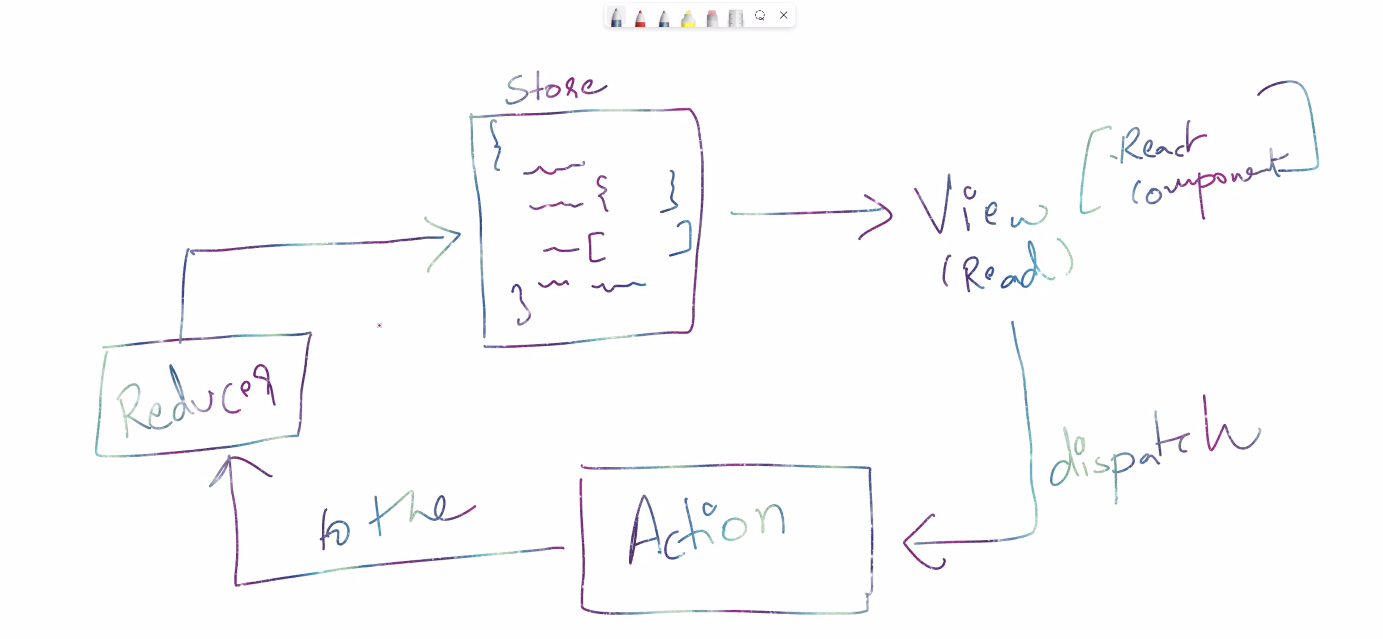 Store
{
{ }
[ ]
}
View
(Read)
[ React
component ]
dispatch
Action
to the
Reducer